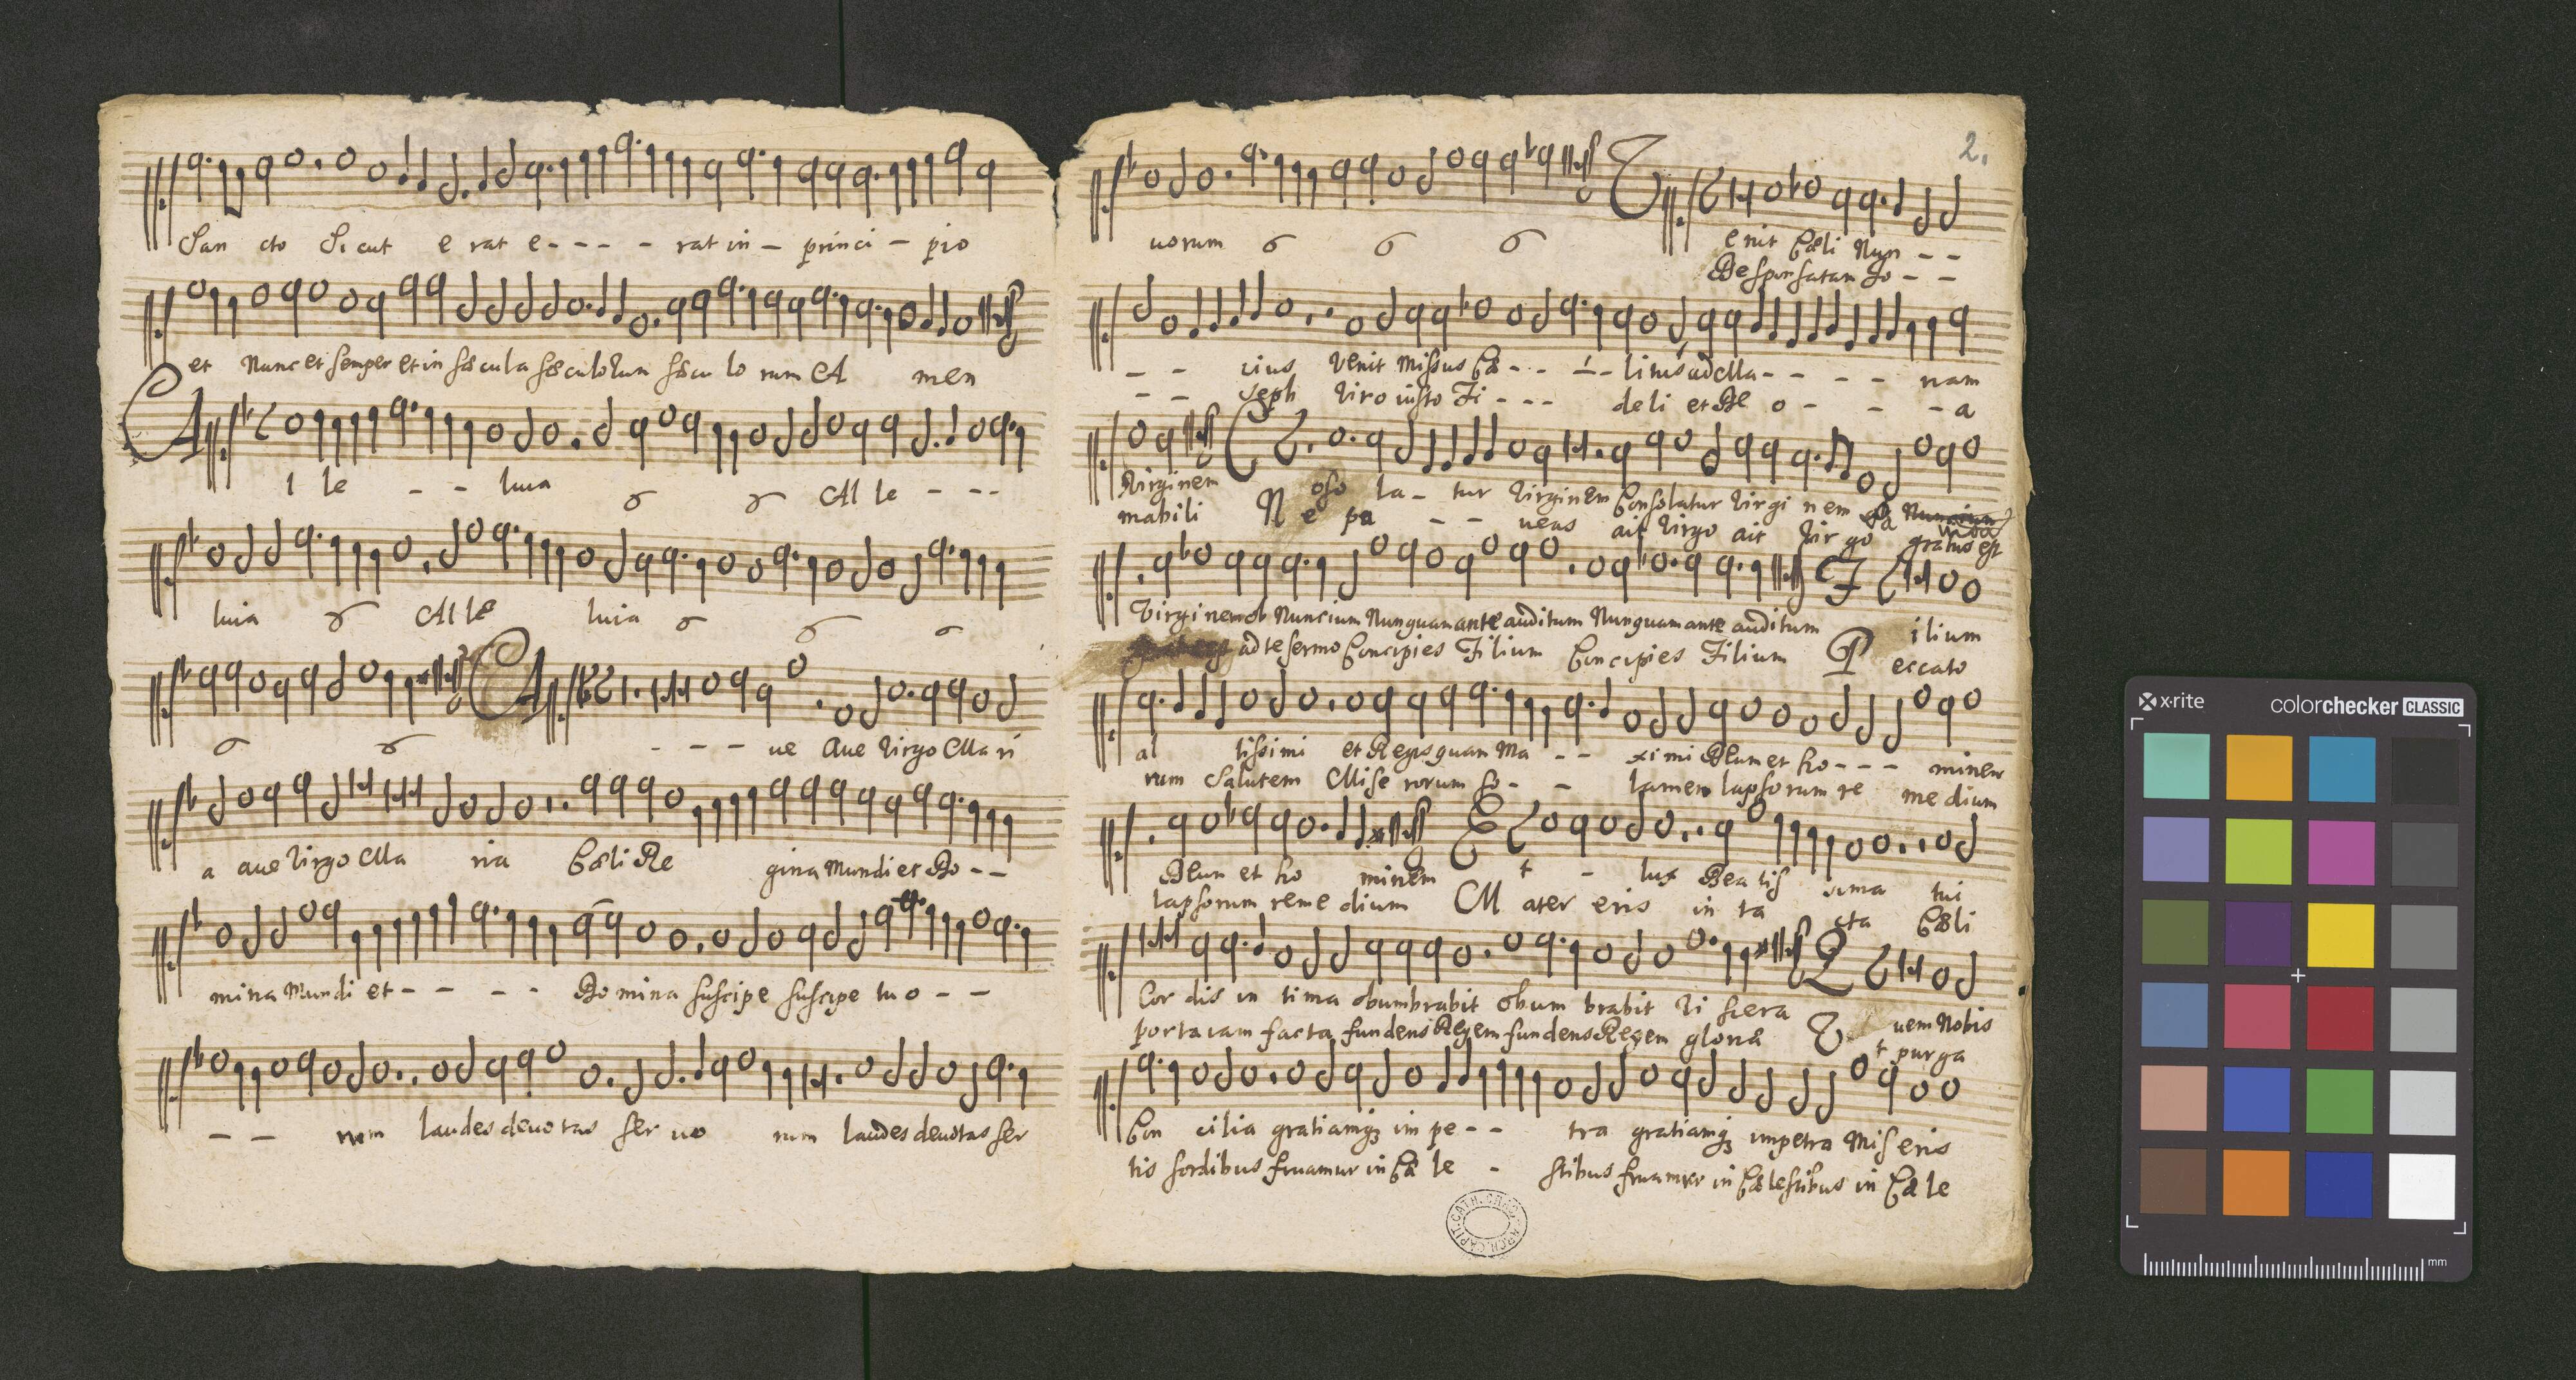 San cto Si cut e rat e - - - - rat in - princi - pio
et Nunc et semper et in sæcula sæculorum sæcu lo rum A men
A l le - - luia Al le - - -
luia Al le luia
A - - - ue Aue Virgo Ma ri
a aue Virgo Ma ria Cæli Re gina Mundi et Do - -
mina Mundi et - - - - Domina suscipe suscipe tuo - -
- - rum laudes deuotas ser uo rum laudes deuotas ser
2.
uorum
V enit Cæli Nun - -
Desponsatam Jo - -
- - cius Venit Missus Cæ - - - - litus ad Ma - - - - nam
- - seph Viro iusto Fi - - - deli et De o - - - a
Virginem C oso la - tur Virginem Consolatur Virgi nem
mabili N e pa - - ueas ait Virgo ait Vir go gratus est
Virginem ob Nuncium Nunquam ante auditum Nunquam ante auditum F ilium
ad te sermo Concipies Filium Concipies Filium P eccato
al tissimi et Regis quam Ma - - ximi Deum et ho - - - minem
rum Salutem Mise rorum so - - lamen lapsorum re medium
Deum et ho minem E t - lux Bea tis sima tui
lapsorum reme dium M ater eris in ta cta Cæli
Cor dis in tima obumbrabit obum brabit Vi scera Q uem Nobis
porta iam facta fundens Regem fundens Regem gloriæ V t purga
Con cilia gratiamq; im pe - - tra gratiamq; impetra Miseris
tis sordibus fruamur in Cæ le - stibus fruamur in Cælestibus in Cæ le
x·rite colorchecker CLASSIC
mm